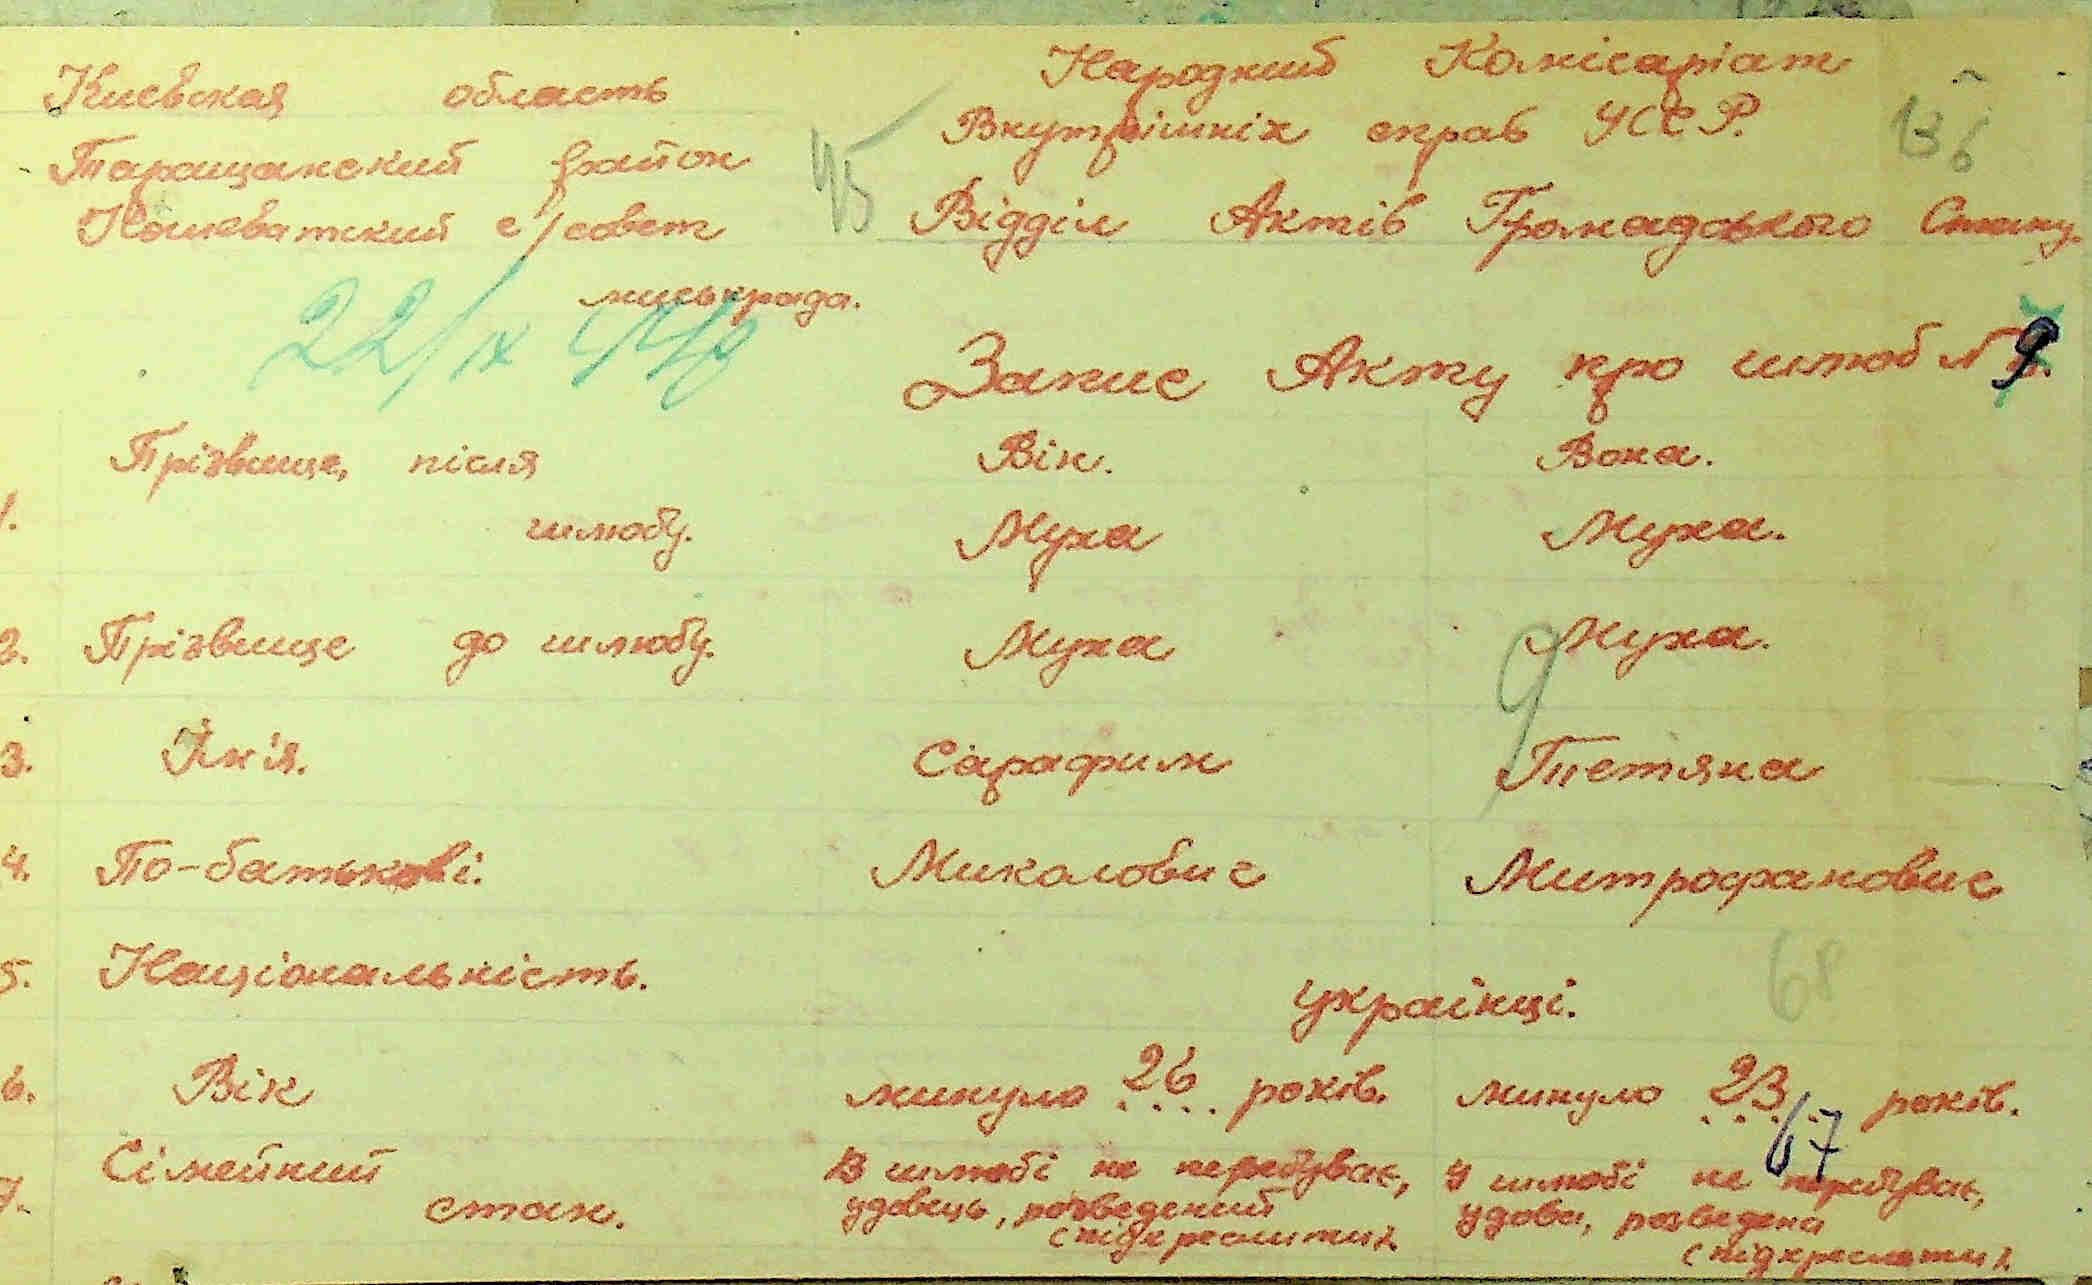 Киевская область
Таращанский район
Кошеватский с/совет
миськрада.
Народний Комісаріат
Внутрішніх справ УССР.
Відділ Актів Громадського Стану.
45
136
22/IX
Запис Акту про шлюб № 9
Прізвище, після Він. Вона.
1. шлюбу. Муха Муха.
2. Прізвище до шлюбу. Муха Муха.
9
3. Їм'я. Сарафим Тетяна
4. По-батькові. Миколович Митрофанович
5. Національність. українці.
68
6. Вік минуло 26 років. минуло 23 років.
67
7. Сімейний В шлюбі не перебуває, У шлюбі не перебуває,
стан. удовець, розведений удова, розведена
(підкреслити). (підкреслити).